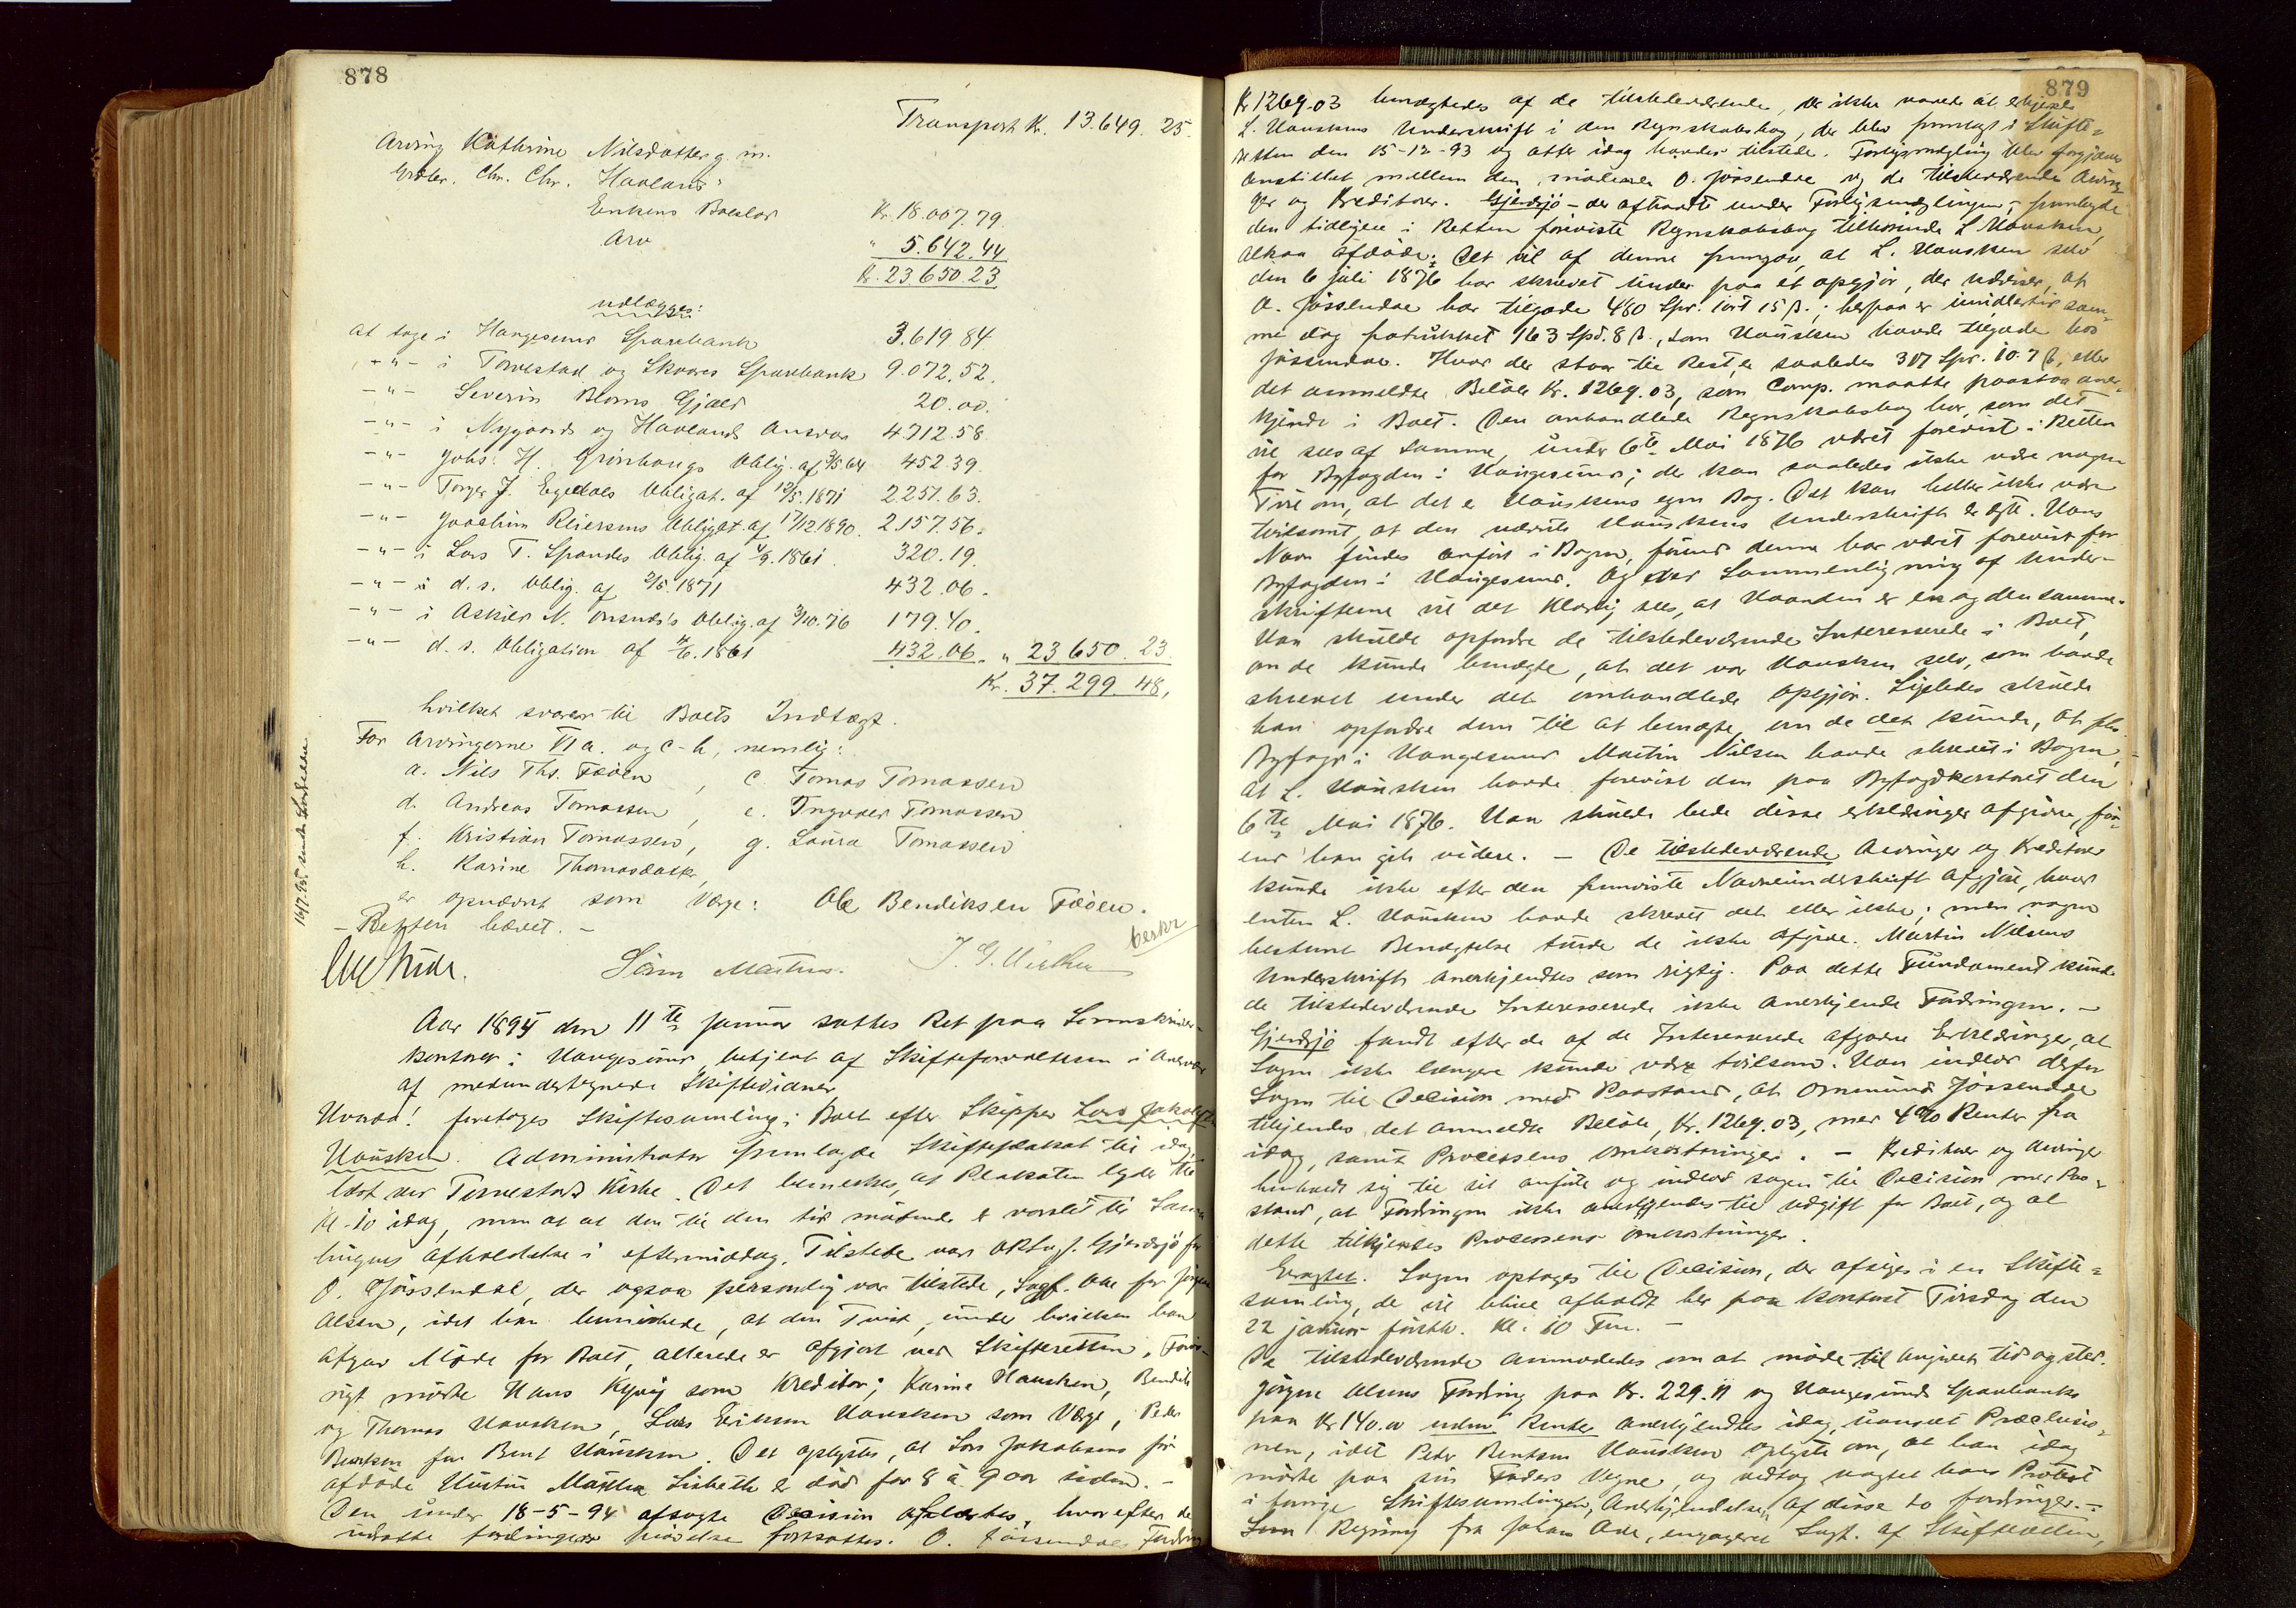 878
Transport Kr. 13.649. 25.
Arving Kathrine Nilsdatter g. m.
Chr. Chr. Havland:
Enkens Boeslod Kr. 18.007.79.
Arv " 5.642.44
Kr. 23.650.23
udlægges:
at tage i Haugesunds Sparebank 3.619 84
-"- i Torvestad og Skaares Sparebank 9.072.52.
-"- Severin Bloms Gjæld 20.00.
-"- i Nygaards og Havlands Ansvar 4.712.58.
-"- Johs. H. Grindhaugs Oblig. af 452.39.
-"- Torger J. Egedals Obligat. af 12/5.1871 2.251.63.
-"- Joachim Reiersens Obligat. af 17/12.1890. 2.157.56.
-"- i Lars T. Spandes Oblig. af 4/9.1861. 320.19.
-"- i d. s. Oblig. af 2/5.1871 432.06.
-"- i Askild N. Oblig. af 3/10.76 179.40.
-"- d. s. Obligation af 1861 432.06. " 23650.23.
Kr. 37.299.48,
hvilket svarer til Boets Indtægt.
For Arvingerne VI a. og c-h, nemlig:
a. Nils Ths. Fæøen, c. Tomas Tomassen
d. Andreas Tomassen, e. Ingvald Tomassen
f. Kristian Tomassen, g. Laura Tomassen
h. Karine Thomasdatter,
er opnævnt som Værge: Ole Bendiksen Fæøen.
- Retten hævet. -
beskr
Aar 1895 den 11te Januar sattes Ret paa Sorenskriver-
kontoret i Haugesund, betjent af Skifteforvalteren i Overvær
af medundertegnede Skiftevidner
Hvorda! foretoges Skiftesamling i Boet efter Skipper Lars Jakobsen
Hausken. Administrator fremlagde Skifteplakat til idag,
læst ved Torvestad Kirke. Det bemerkes, at Plakaten lyder til
Kl. 10 idag, men at at den til den tid mødende er varslet til Sam-
lingens Afholdelse i eftermiddag. Tilstede var O.R.Sagf. Gjerdsjø for
O. Jøssendal, der ogsaa personlig var tilstede, Sagf. Ode for Jørgen
Olsen, idet han bemærkede, at den Tvist, under hvilken han
afgav Møde for Boet, allerede er afgjort ved Skifteretten. Forøv-
rigt mødte Hans Kyvig som Kreditor; Karine Hausken, Bendik
og Thomas Hausken, Lars Eriksen Hausken som Værge, Peder
Bentsen for Bent Hausken. Det oplystes, at Lars Jakobsens før
afdøde Hustru Martha Lisbeth er død for 8 à 9 aar siden. -
Den under 18-5-94 afsagte Decision oplæstes, hvorefter de
udsatte fordringers prøvelse fortsattes. O. Jøssendals Fordring
879
Kr 1269.03 benægtedes af de tilstedeværende, der ikke vovede at erkjende
L. Hauskens Underskrift i den Regnskabsbog, der blev fremlagt i Skifte-
retten den 15-12-93 og atter idag havdes tilstede. Forligsmægling blev forgjæves
anstillet mellem den mødende O. Jøssendal og de tilstedeværende Arvin-
ger og Kreditorer. Gjerdsjø - der aftraadte under Forligsmæglingen, - fremlagde
den tidligere i Retten foreviste Regnskabsbog tilhørende L Hausken,
altsaa Afdøde: Det vil af denne fremgaa, at L. Hausken selv
den 6 juli 1876 har skrevet under paa et opgjør, der udviser, at
O. Jøssendal har tilgode 480 Spd. 1ort 15 β.; herpaa er imidlertid sam-
me dag fratrukket 163 Spd. 8 β., som Hausken havde tilgode hos
Jøssendal. Hvad der staar til Rest, er saaledes 317 Spd. 10. 7 β, eller
det anmeldte Beløb Kr. 1269.03, som Comp. maatte paastaa aner-
kjendt i Boet. Den omhandlede Regnskabsbog har, som det
vil sees af samme, under 6te Mai 1876 været forevist i Retten
for Byfogden i Haugesund; der kan saaledes ikke være nogen
Tvil om, at det er Hauskens egen Bog. Det kan heller ikke være
tvilsomt, at den nævnte Hauskens Underskrift er egte. Hans
Navn findes anført i Bogen, førend denne har været forevist for
Byfogden i Haugesund. Og ved Sammenligning af Under-
skrifterne vil det klarlig sees, at Haanden er en og den samme.
Han skulde opfordre de tilstedeværende Interesserede i Boet,
om de kunde benægte, at det var Hausken selv, som havde
skrevet under det omhandlede opgjør. Ligeledes skulde
han opfordre dem til at benægte, om de det kunde, at
Byfogd i Haugesund Martin Nilsen havde skrevet i Bogen,
at L. Hausken havde forevist den paa Byfogdkontoret den
6te Mai 1876. Han skulde bede disse erklæringer afgivne, før-
end han gik videre. - De tilstedeværende Arvinger og Kreditorer
kunde ikke efter den fremviste Navneunderskrift afgjøre, hvor-
enten L. Hausken havde skrevet det eller ikke; men nogen
bestemt Benægtelse turde de ikke afgive. Martin Nilsens
Underskrift anerkjendtes som rigtig. Paa dette Fundament kunde
de tilstedeværende Interesserede ikke anerkjende Fordringen. -
Gjerdsjø fandt efter de af de Interesserede afgivne Erklæringer, at
Sagen ikke længere kunde være tvilsom. Han indlod derfor
Sagen til Decision med Paastand, at Ommund Jøssendal
tilkjendes det anmeldte Beløb, Kr. 1269.03, med 4% Renter fra
idag, samt Processens Omkostninger. - Kreditorer og Arvinger
henholdt sig til sit anførte og indlod sagen til Decision med Paa-
stand, at Fordringen ikke anerkjendes til udgift for Boet, og at
dette tilkjendes Processens omkostninger.
Eragtet. Sagen optages til Decision, der afsiges i en Skifte-
samling, de vil blive afholdt her paa Kontoret Tirsdag den
22 januar førstk. Kl. 10 Fm. -
De tilstedeværende anmodedes om at møde til angivet tid og sted.
Jørgen Olsens Fordring paa Kr. 229.11 og Haugesunds Sparebanks
paa Kr 140.00 uden Renter anerkjendtes idag, uanseet Præclusio-
nen, idet Peder Bentsen Hausken oplyste om, at han idag
mødte paa sin Faders Vegne, og vedtog uagtet hans Protest
i forrige Skiftesamlingen, Anerkjendelsen af disse to fordringer. -
Regning fra Johan Ode, engageret Sagf. af Skifteretten,